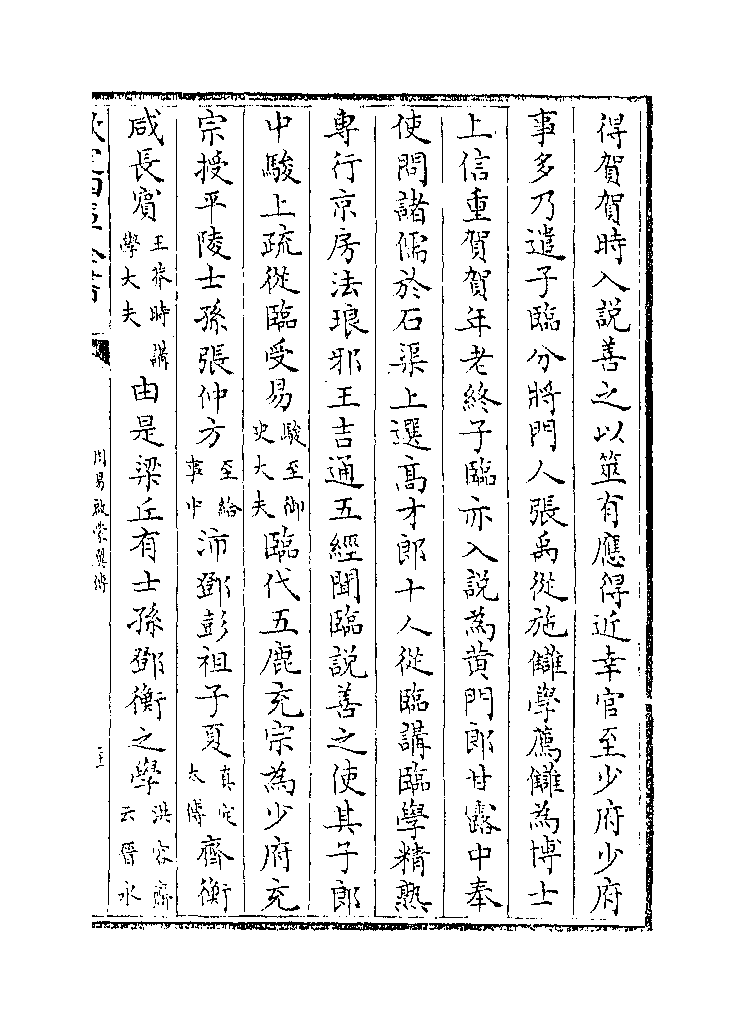 得賀賀時入説善之以筮有應得近幸官至少府少府
事多乃遣子臨分將門人張禹從施讎學薦讎為博士
上信重賀賀年老終子臨亦入説為黄門郎甘露中奉
使問諸儒於石渠上選髙才郎十人從臨講臨學精熟
專行京房法琅邪王吉通五經聞臨説善之使其子郎
中駿上疏從臨受易駿至御史大夫臨代五鹿充宗為少府充
宗授平陵士孫張仲方至給事中沛鄧彭祖子夏真定太傅齊衡
咸長賓王莽時講學大夫由是梁丘有士孫鄧衡之學洪容齋云晉永
周易啟蒙翼傳